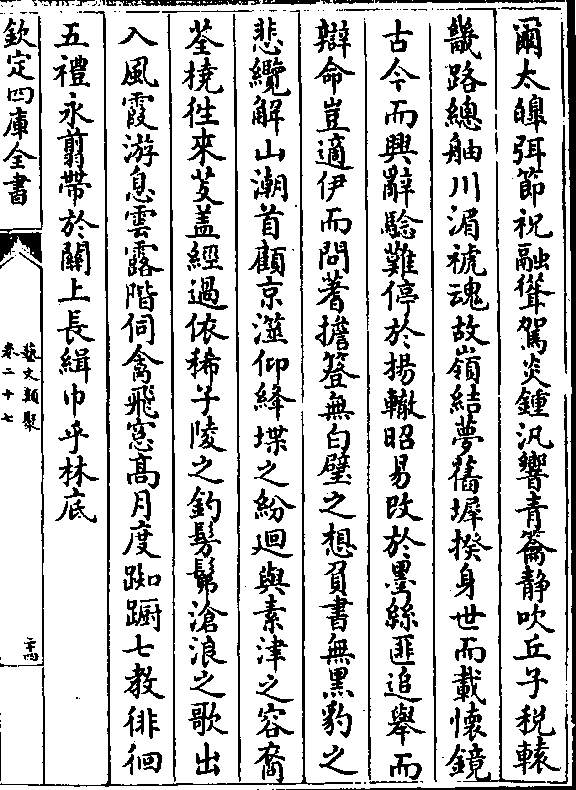 爾太皥弭節祝融聳駕炎鍾汎響青籥静吹丘子税轅
畿路總舳川湄褫魂故嶺結夢舊墀揆身世而載懷鏡
古今而興辭騐難停於揚轍昭易改於墨絲匪追舉而
辯命豈適伊而問著擔簦無白璧之想負書無黒豹之
悲纜解山潮首顧京澨仰絳堞之紛迴與素津之容裔
荃橈徃來芰盖經過依稀子陵之釣髣髴滄浪之歌出
入風霞游息雲露階伺禽飛窓髙月度踟蹰七教徘徊
五禮永翦帶於闗上長緝巾乎林底
欽定四庫全書
藝文類聚
卷二十七